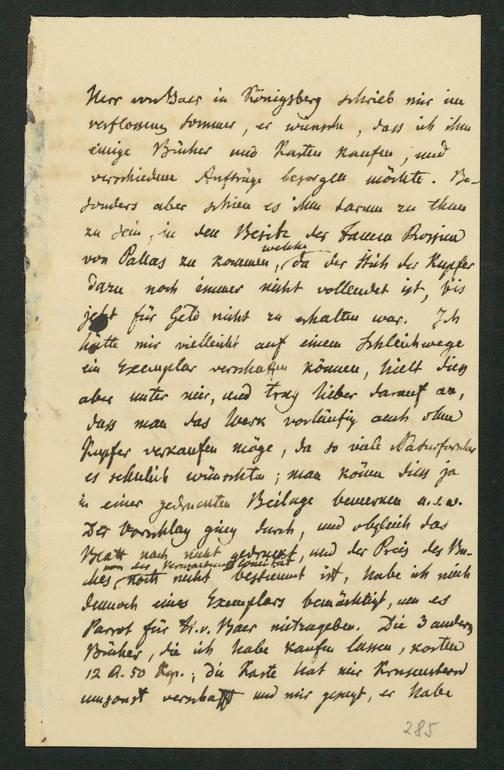 Herr von Baer in Königsberg schrieb mir im
verflossenen Sommer, er wünsche, dass ich ihm
einige Bücher und Karten kaufen, und
verschiedene Aufträge besorgen möchte. Be-
sonders aber schien es ihm darum zu thun
zu sein, in den Besitz der Fauna Rossica
von Pallas zu kommen, welche, da der Stich der Kupfer
dazu noch immer nicht vollendet ist, bis
jetzt für Geld nicht zu erhalten war. Ich
hätte mir vielleicht auf einem Schleichwege
ein Exemplar verschaffen können, hielt dies
aber unter mir, und trug lieber darauf an,
dass man das Werk vorläufig auch ohne
Kupfer verkaufen möge, da so viele Naturforscher
es sehnlich wünschten; man könne dies ja
in einer gedruckten Beilage bemerken u.s.w.
Der Vorschlag ging durch, und obgleich das
Blatt noch nicht gedruckt, und der Preis des Bu-
ches von der noch nicht bestimmt ist, habe ich mich
dennoch eines Exemplars bemächtigt, um es
Parrot für H. v. Baer mitzugeben. Die 3 andern
Bücher, die ich habe kaufen lassen, kosten
12 R. 50 Kop.; die Karte hat mir Krusenstern
umsonst verschafft und mir gesagt, er habe
285